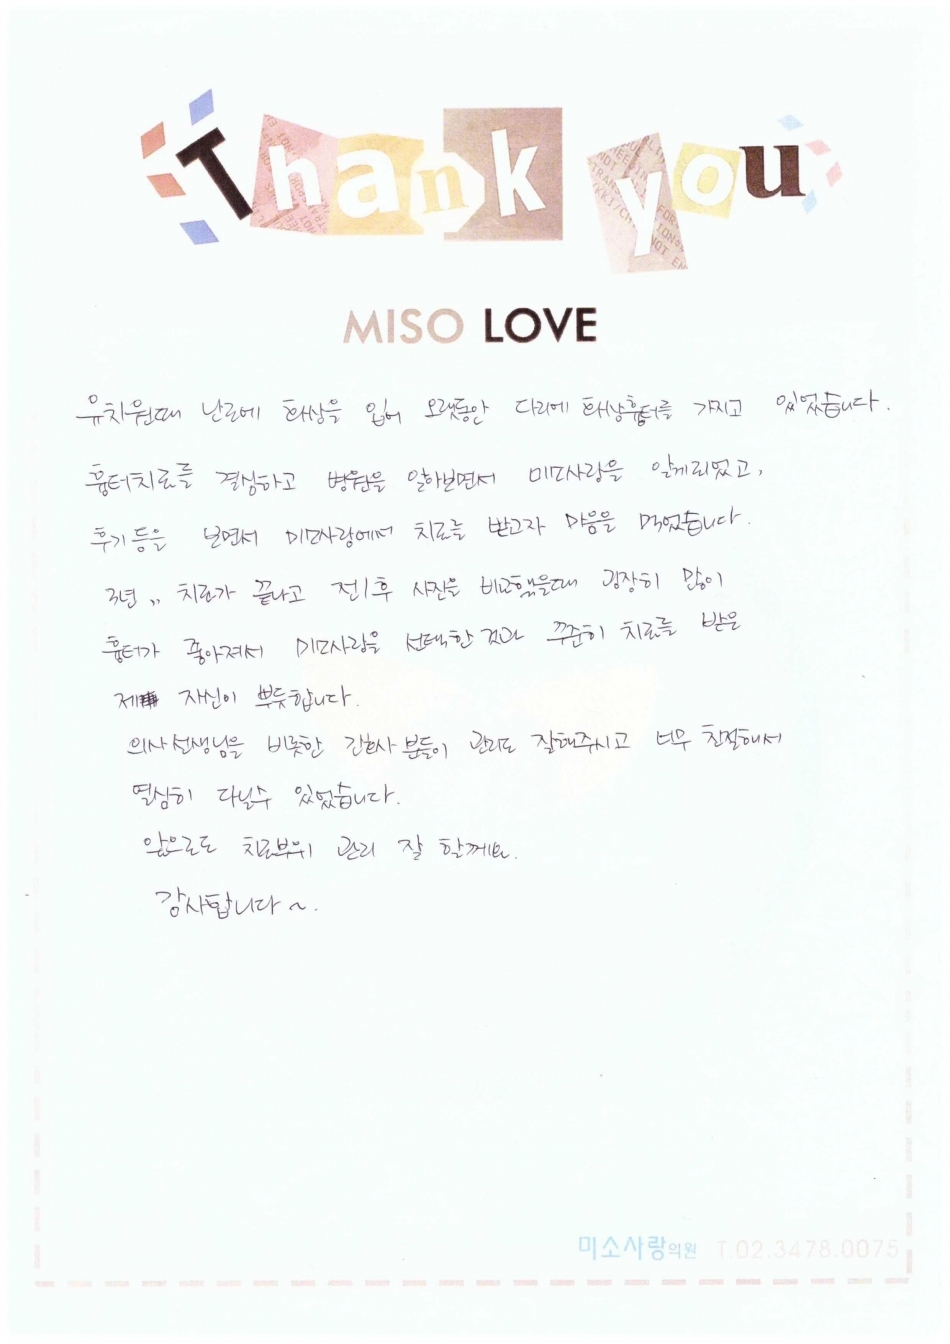 Thank you
MISO LOVE
유치원때 난로에 화상을 입어 오랫동안 다리에 화상흉터를 가지고 있었습니다.
흉터치료를 결심하고 병원을 알아보면서 미소사랑을 알게되었고,
후기등을 보면서 미소사랑에서 치료를 받고자 마음을 먹었습니다.
3년,, 치료가 끝나고 전/후 사진을 비교했을때 굉장히 많이
흉터가 좋아져서 미소사랑을 선택한 것과 꾸준히 치료를 받은
제 자신이 뿌듯합니다.
의사선생님을 비롯한 간호사 분들이 관리도 잘해주시고 너무 친절해서
열심히 다닐수 있었습니다.
앞으로도 치료부위 관리 잘 할께요.
감사합니다~.
미소사랑의원 T.02.3478.0075